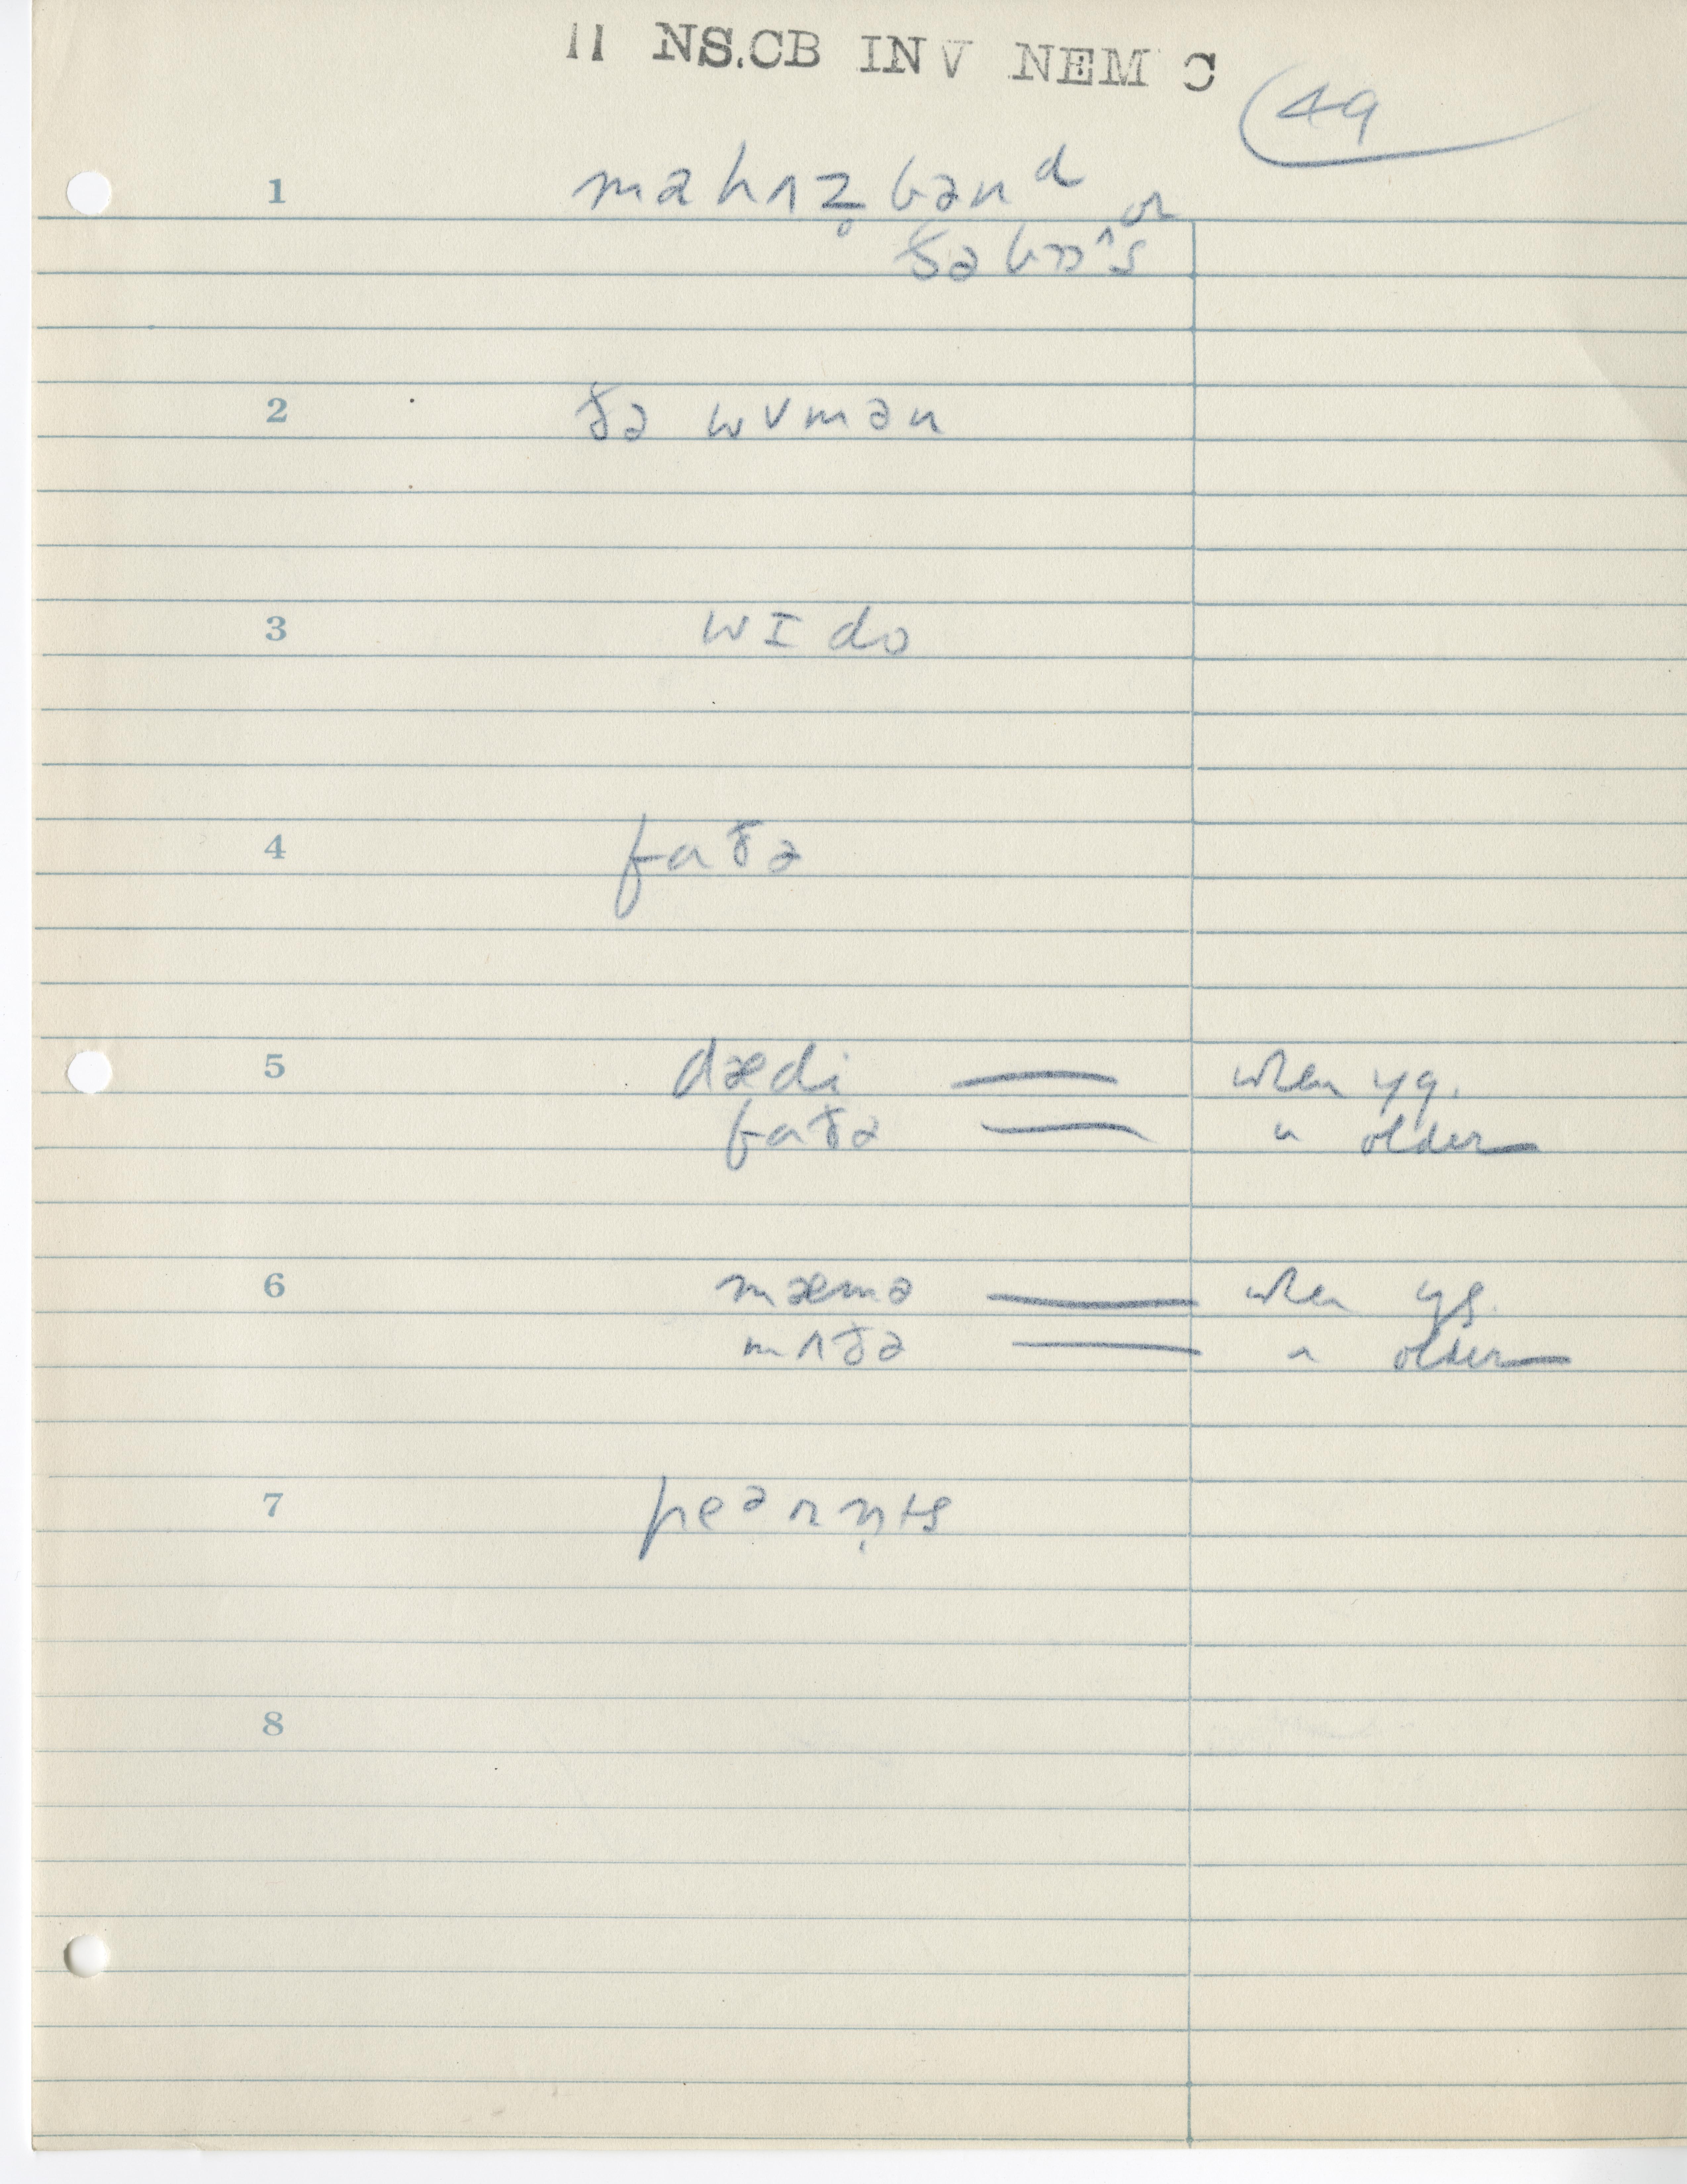 11 NS.CB INV NEM C
49
1 mə hʌz̥bənᵈ or
ðə bɔˆs
2 ðə wʊmən
3 wɪdo
4 faðə
5 dædi — when yg.
faðə — " older —
6 mæmə — when yg.
mʌðə — " older —
7 peᵊrn̩ts
8